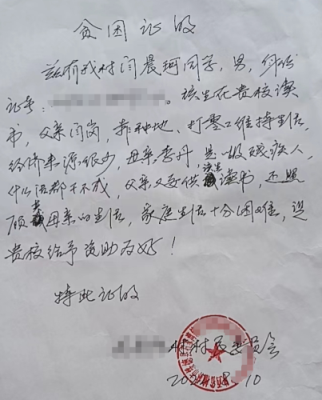 贫困证明
兹有我村闫晨珂同学，男，身份
证号：
。该生在贵校读
书，父亲闫岗，靠种地、打零工维持生活
经济来源很少，母亲李丹，是一级残疾人，
什么活都干不成，父亲又要供读书，还照
顾其母亲的生活，家庭生活十分困难，望
贵校给予资助为好！
特此证明
村村民委员会
10